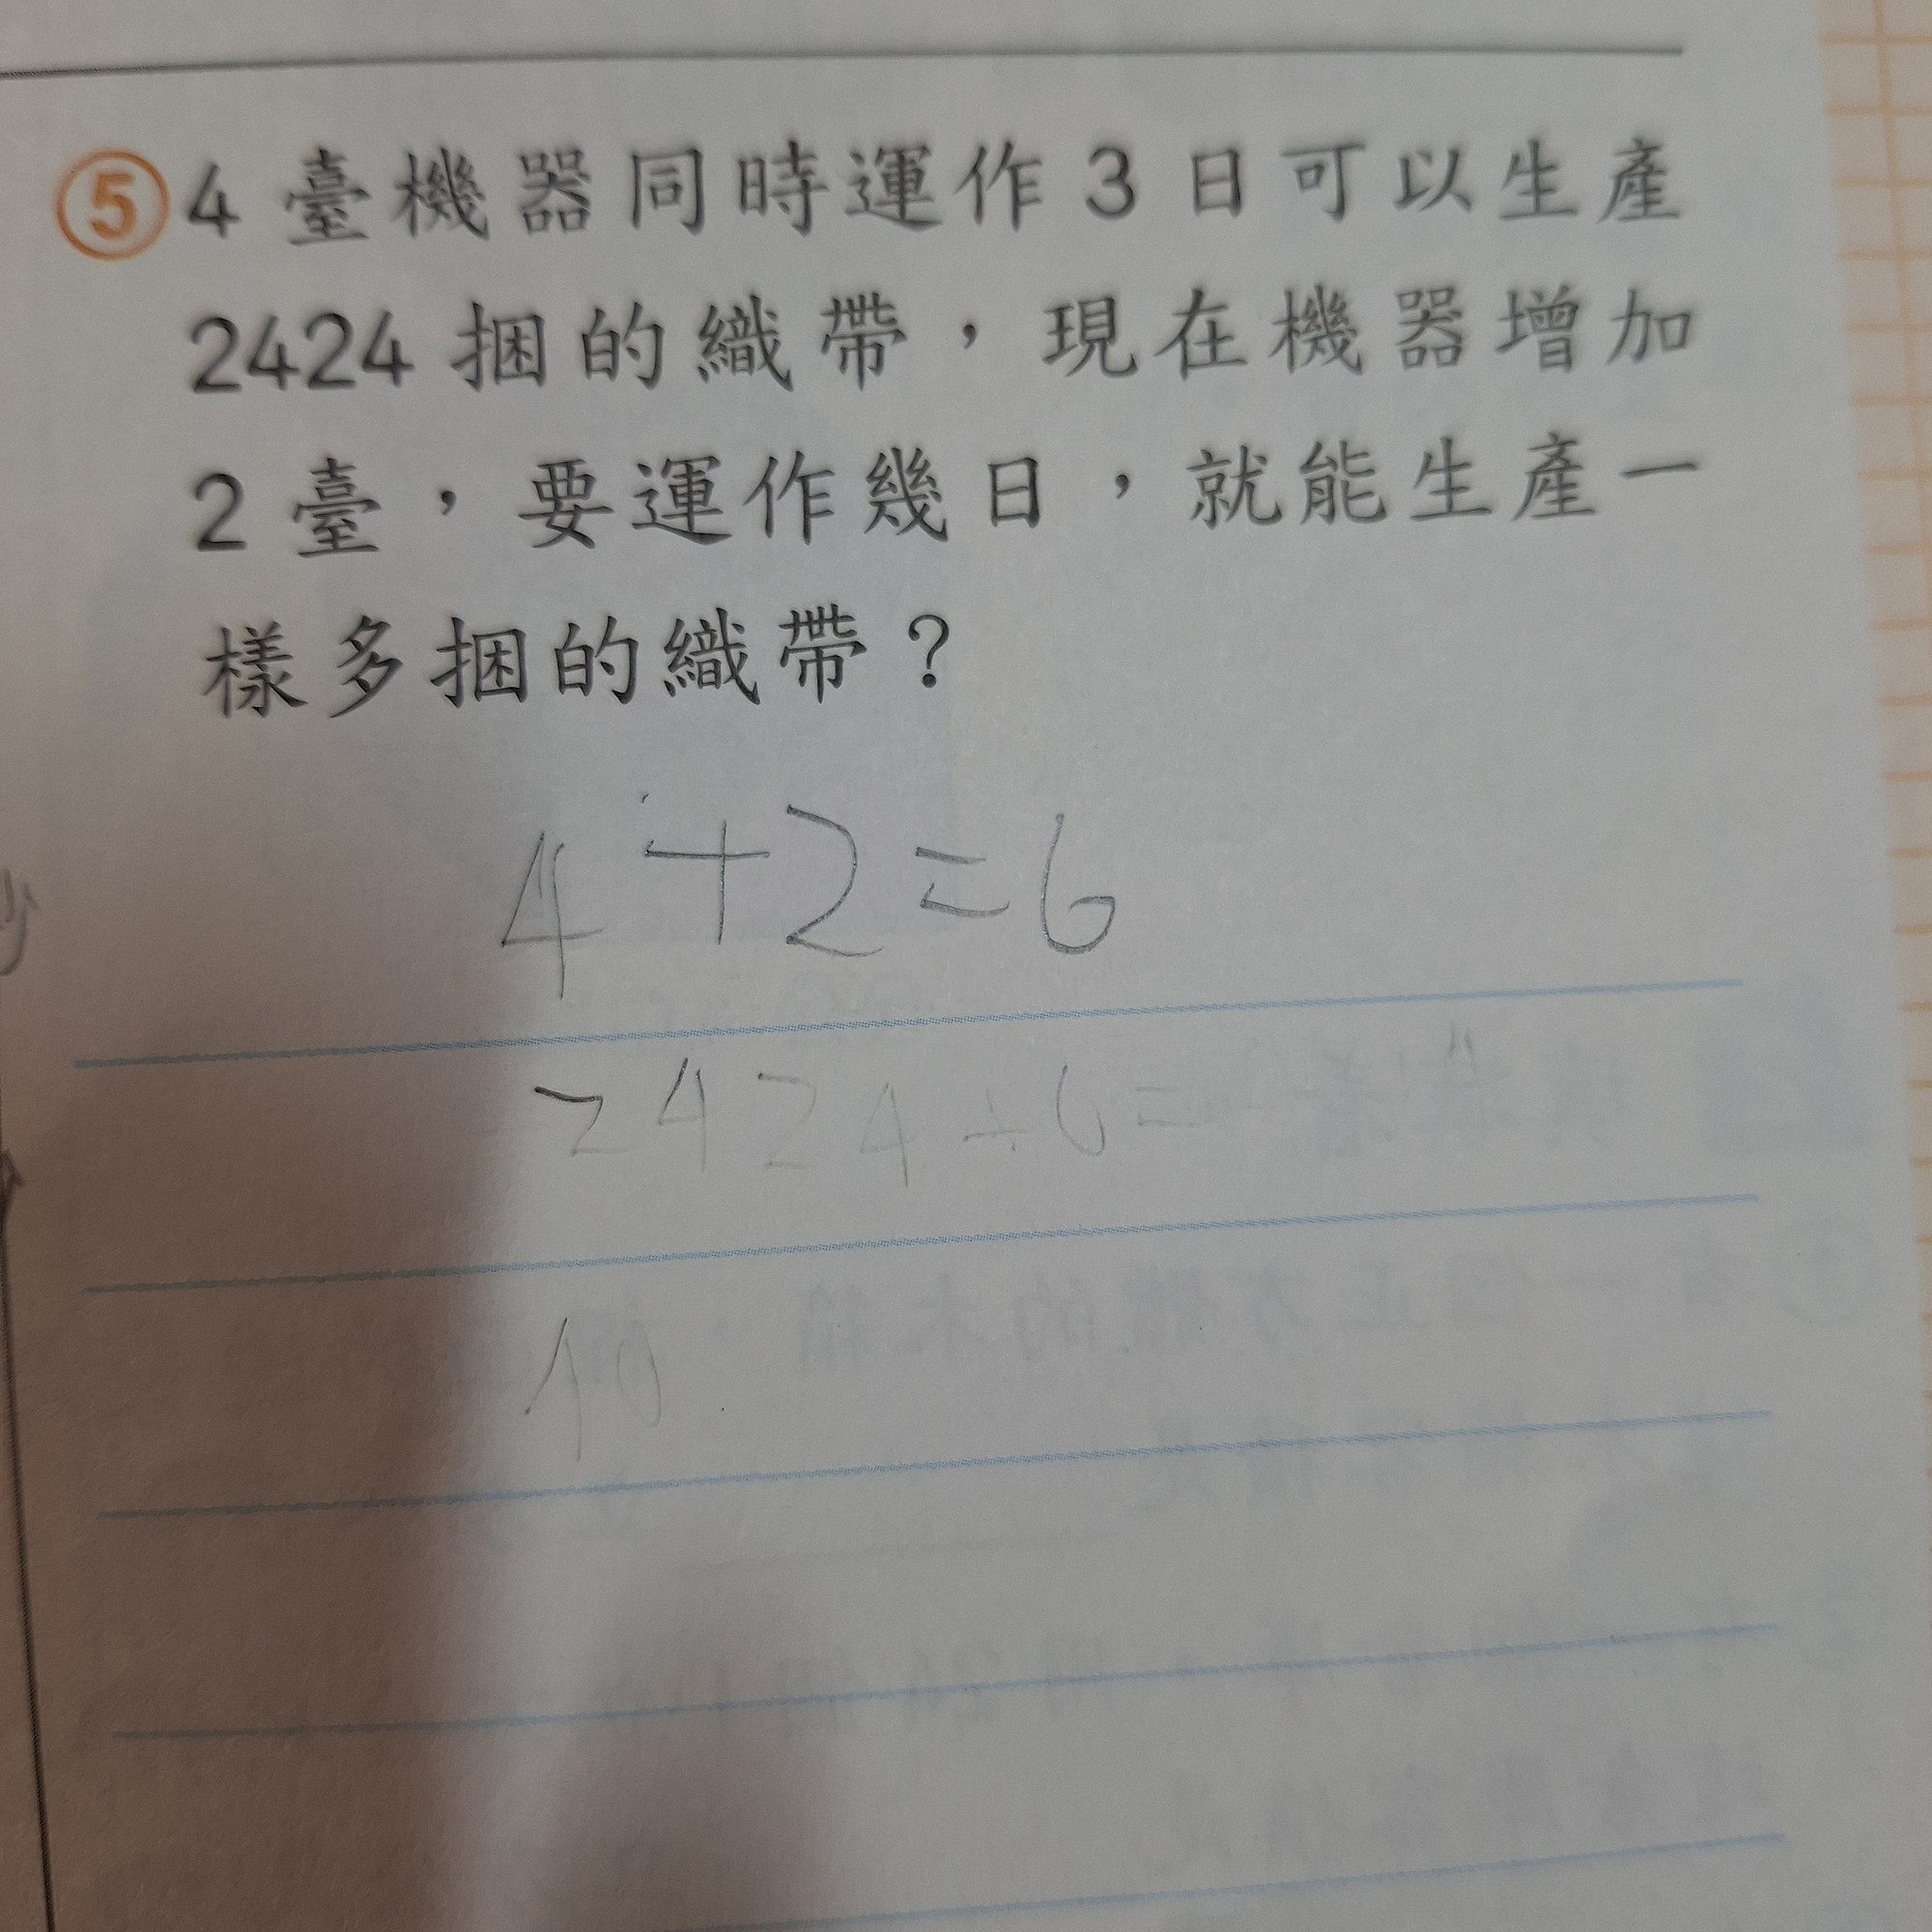 ⑤4臺機器同時運作3日可以生產
2424捆的織帶，現在機器增加
2臺，要運作幾日，就能生產一
樣多捆的織帶？
4+2=6
2424÷6=